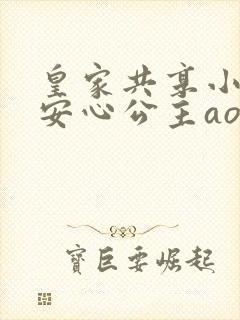 皇家共享小
安心公主ao
寶巨要崛起